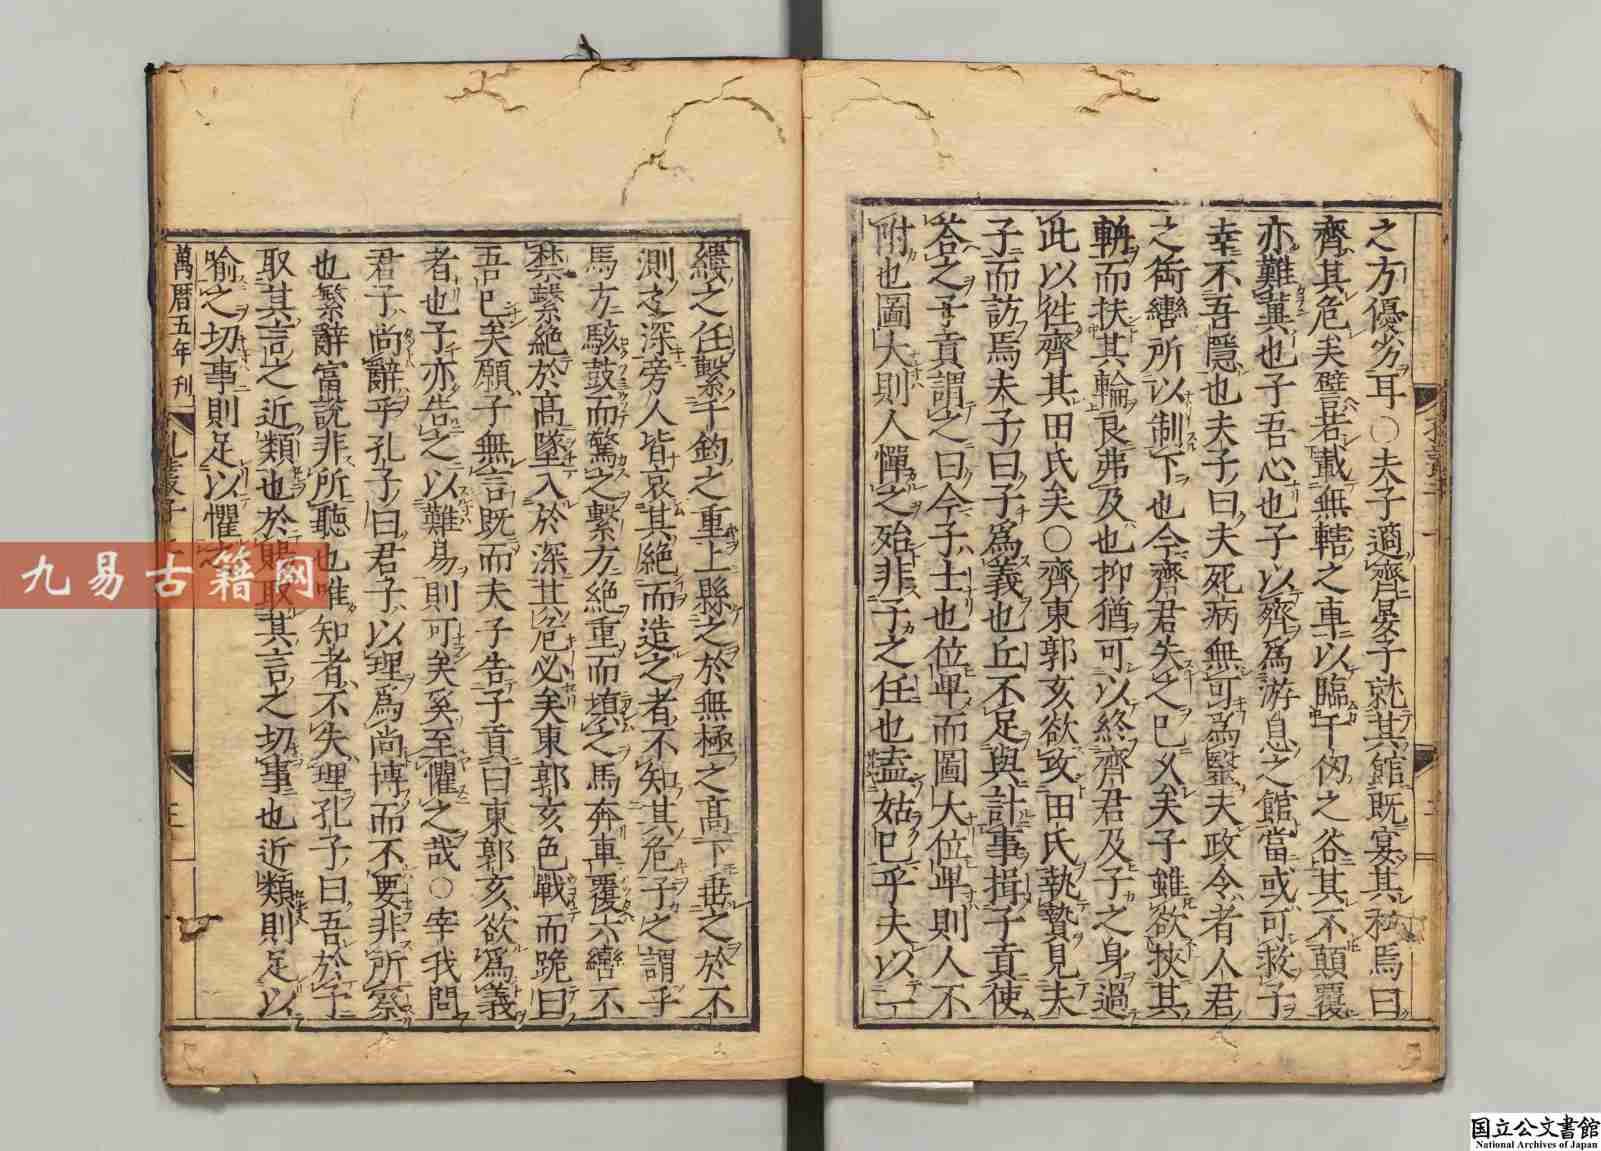 之方優劣耳○夫子適齊晏子就其館既宴其私焉曰
齊其危矣譬若載無轄之車以臨千仞之谷其不顛覆
亦難冀也子吾心也子以齊爲游息之館當或可救子
幸不吾隱也夫子曰夫死病無可爲毉夫政令者人君
之銜轡所以制下也今齊君失之已久矣子雖欲挾其
輈而扶其輪良弗及也抑猶可以終齊君及子之身過
此以徃齊其田氏矣○齊東郭亥欲攻田氏執贄見夫
子而訪焉夫子曰子爲義也丘不足與計事揖子貢使
荅之子貢謂之曰今子士也位卑而圖大位卑則人不
附也圖大則人憚之殆非子之任也盍姑已乎夫以一
縷之任繫千鈞之重上縣之於無極之高下垂之於不
測之深旁人皆哀其絶而造之者不知其危子之謂乎
馬方駭鼓而驚之繫方絶重而塡之馬奔車覆六轡不
禁繫絶於高墜入於深其危必矣東郭亥色戰而跪曰
吾已矣願子無言既而夫子告子貢曰東郭亥欲爲義
者也子亦告之以難易則可矣奚至懼之哉○宰我問
君子尚辭乎孔子曰君子以理爲尚博而不要非所察
也繁辭富說非所聽也唯知者不失理孔子曰吾於予
取其言之近類也於賜取其言之切事也近類則足以
喻之切事則足以懼
萬暦五年刊
孔叢子
九易古籍网
国立公文書館
National Archives of Japan